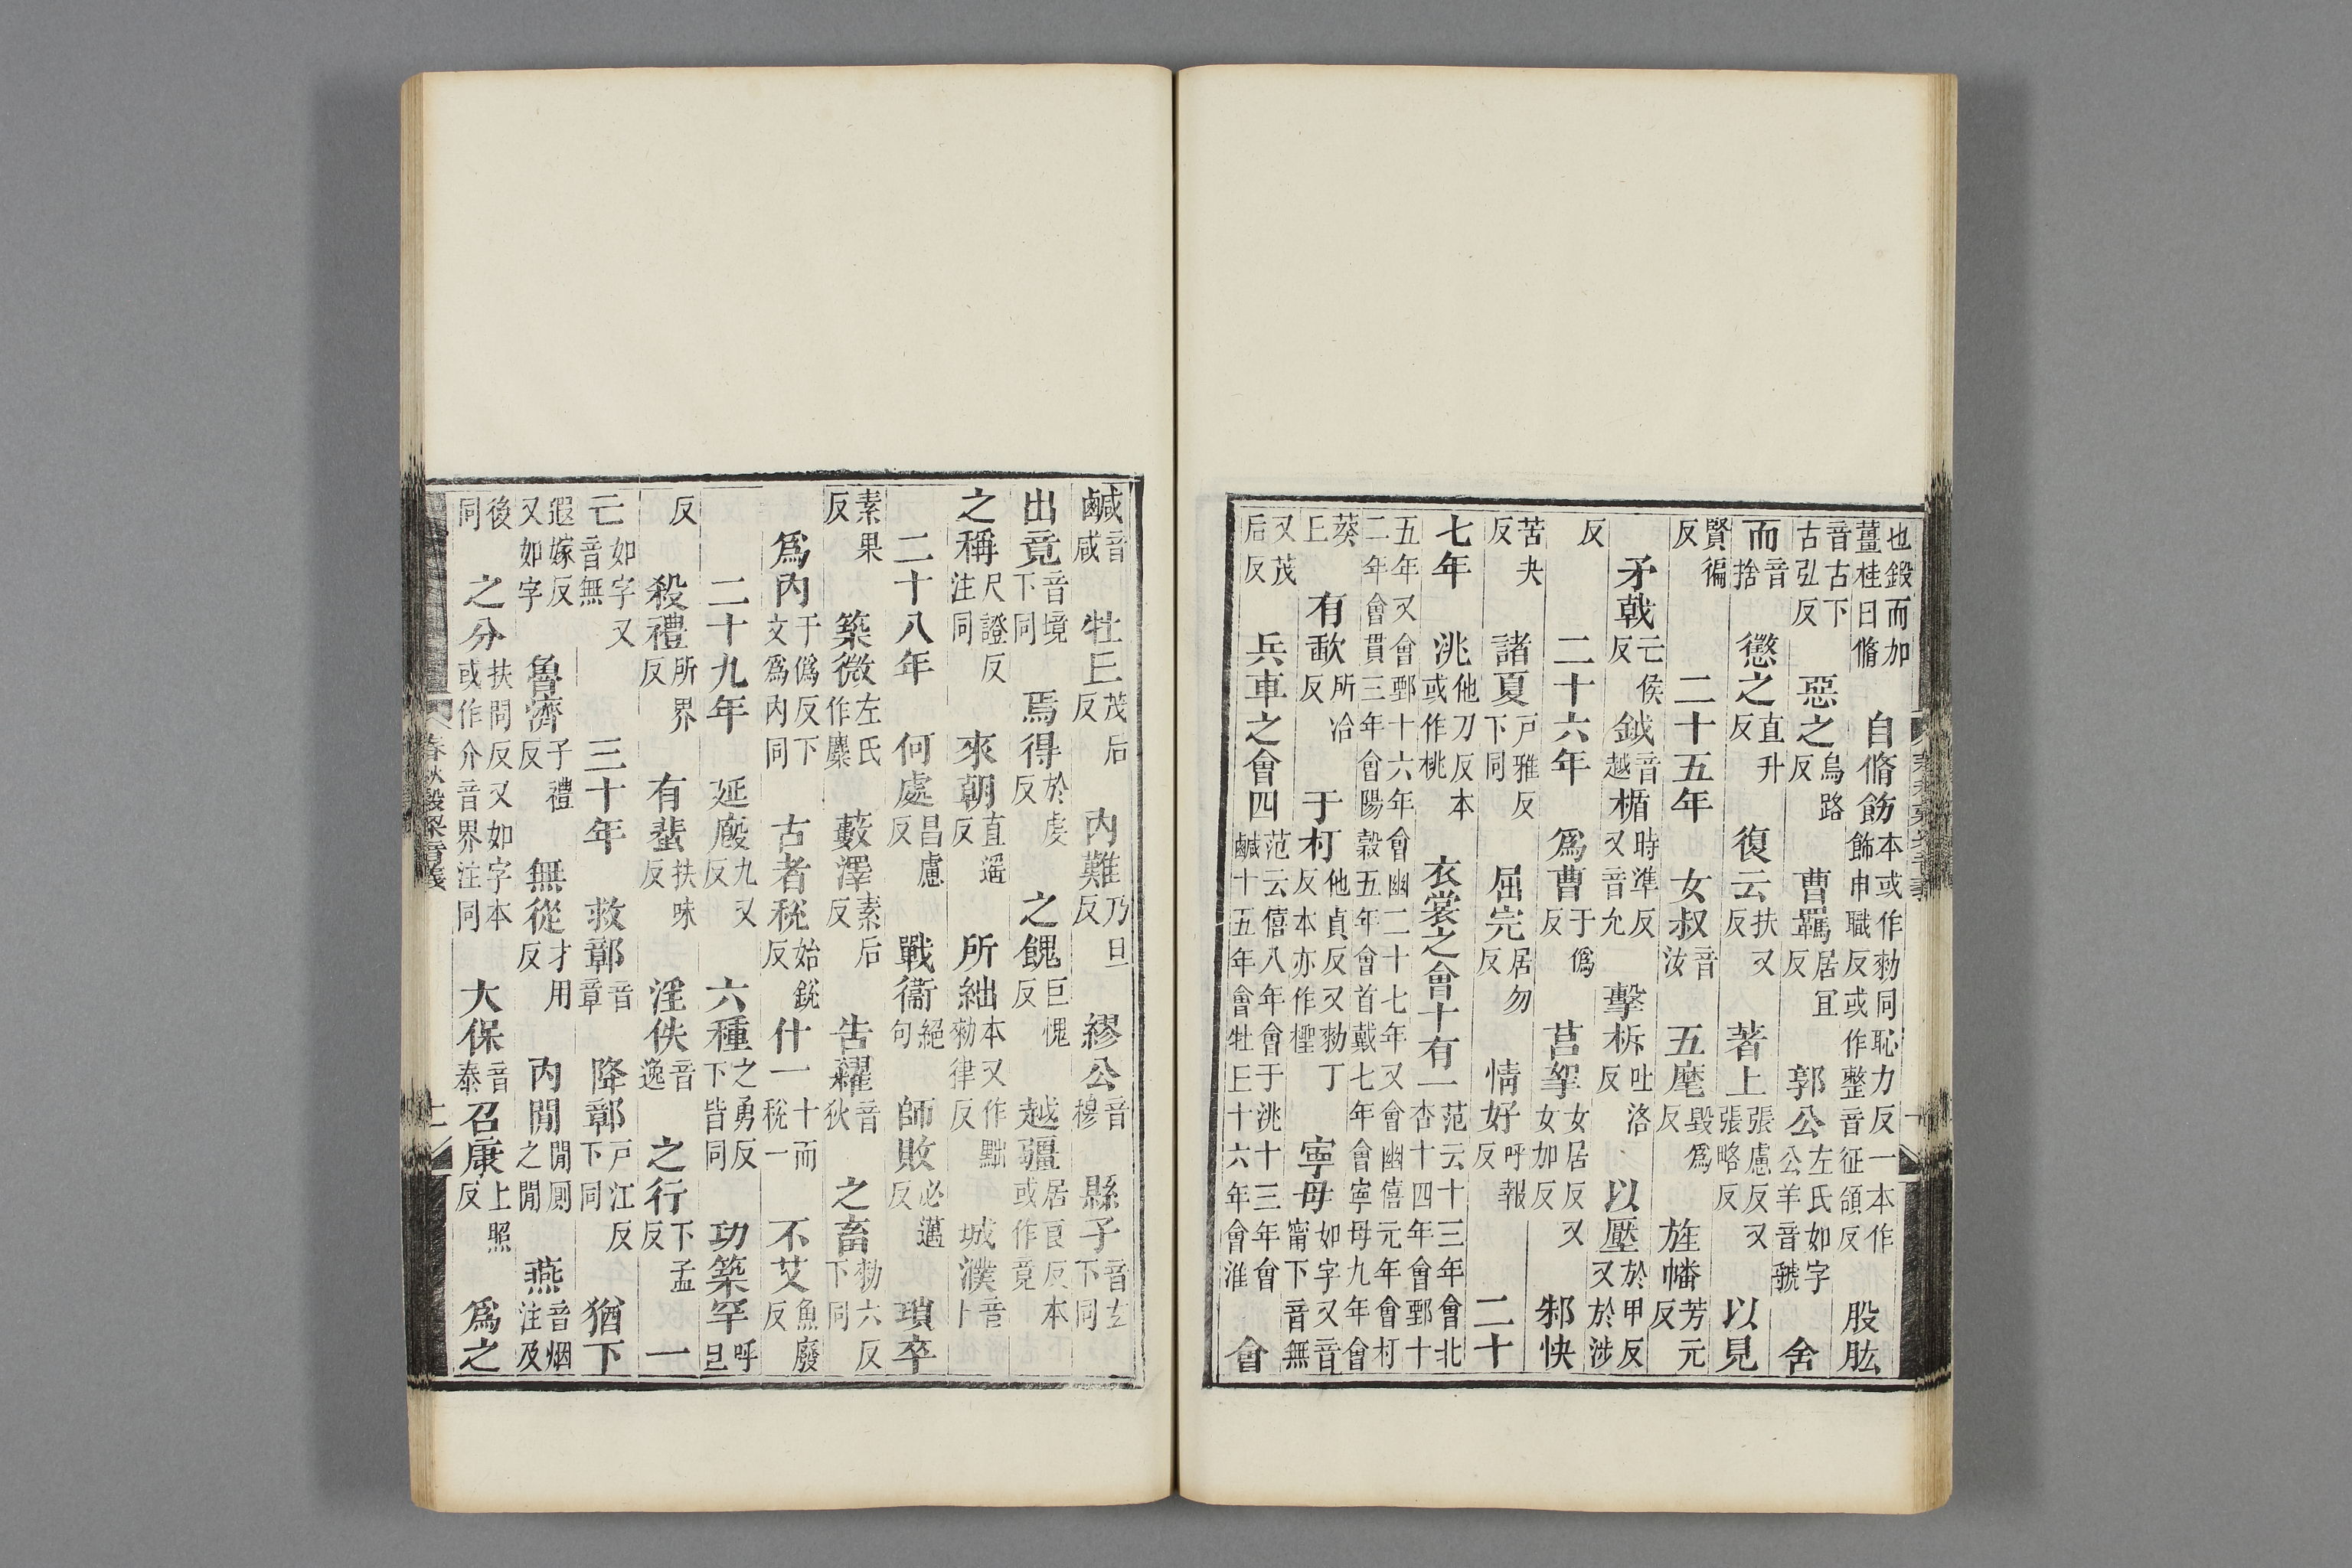 也鍛而加薑桂曰脩 自脩飭本或作勑同恥力反一本作飾申職反或作整音征頜反 股肱
音古下古弘反 惡之烏路反 曹羈居宜反 郭公左氏如字公羊音虢 舍
而音捨 懲之直升反 復云扶又反 著上張慮反又張略反 以見
賢徧反 二十五年 女叔音汝 五麾毀為反 旌幡芳元反
矛戟亡侯反 鉞音越 楯時準反又音允 擊柝吐洛反 以壓於甲反又於涉
反 二十六年 爲曹于僞反 莒挐女居反又女加反 邾快
苦夬反 諸夏戶雅反下同 屈完居勿反 情好呼報反 二十
七年 洮他刀反本或作桃 衣裳之會十有一范云十三年會北杏十四年會鄄十
五年又會鄄十六年會幽二十七年又會幽僖元年會村二年會貫三年會陽穀五年會首戴七年會寧母九年會
葵丘 有歃所洽反 于朾他貞反又勑丁反本亦作檉 寧母如字又音甯下音無
又茂后反 兵車之會四范云僖八年會于洮十三年會鹹十五年會牡丘十六年會淮 會
鹹音咸 牡丘茂后反 內難乃旦反 繆公音穆 縣子音玄下同
出竟音境下同 焉得於虔反 之餽巨愧反 越疆居良反本或作竟
之稱尺證反注同 來朝直遥反 所絀本又作黜勑律反 城濮音卜
二十八年 何處昌慮反 戰衞絕句 師敗必邁反 瑣卒
素果反 築微左氏作麋 藪澤素后反 告糴音狄 之畜勑六反下同
爲內于僞反下文爲內同 古者稅始銳反 什一十而稅一 不艾魚廢反
二十九年 延廄九又反 六種之勇反下皆同 功築罕呼旦
反 殺禮所界反 有蜚扶味反 淫佚音逸 之行下孟反 一
亡如字又音無 三十年 救鄣音章 降鄣戶江反下同 猶下
遐嫁反又如字 魯濟子禮反 無從才用反 內閒閒厠之閒 燕音烟注及
後同 之分扶問反又如字本或作介音界注同 大保音泰 召康上照反 爲之
春秋穀梁音義